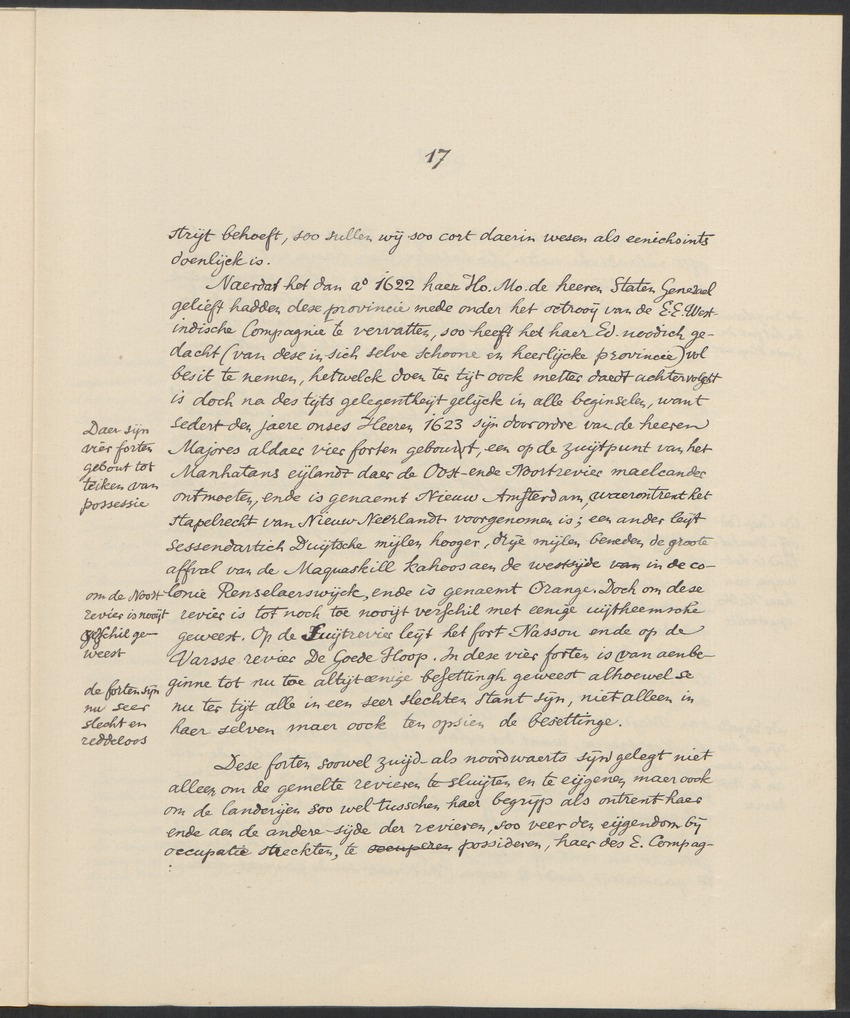 17
strijt behoeft, soo sullen wij soo cort daerin wesen als eenichsints
doenlijck is.
Naerdat het dan aº 1622 haer Ho. Mo. de heeren Staten Generael
gelieft hadden dese provincie mede onder het octrooij van de E.E. West-
indische Compagnie te vervatten, soo heeft het haer Ed. noodich ge-
dacht (van dese in sich selve schoone en heerlijcke provincie) vol
besit te nemen, hetwelck doen ter tijt oock metter daedt achtervolght
is doch na des tijts gelegentheijt gelijck in alle beginselen, want
sedert den jaere onses Heeren 1623 sijn door ordre van de heeren
Majores aldaer vier forten gebouwt, een op de zuijtpunt van het
Manhatans eijlandt daer de Oost- ende Noortrevier malcander
ontmoeten, ende is genaemt Nieuw Amsterdam, waerontrent het
stapelrecht van Nieuw Neerlandt voorgenomen is; een ander leijt
sessendartich Duijtsche mijlen hooger, drije mijlen beneden de groote
affval van de Maquaskill kahoos aen de westsijde van in de co-
lonie Renselaerswijck, ende is genaemt Orange. Doch om dese
revier is tot noch toe nooijt verschil met eenige uijtheemsche
geweest. Op de Suijtrevier leijt het fort Nassou ende op de
Varsse revier De Goede Hoop. In dese vier forten is van aenbe-
ginne tot nu toe altijt eenige besettingh geweest alhoewel se
nu ter tijt alle in een seer slechten stant sijn, niet alleen in
haer selven maer oock ten opsien de besettinge.
Dese forten soowel zuijd- als noordwaerts sijn gelegt niet
alleen om de gemelte revieren te sluijten en te eijgenen maer oock
om de landerijen soo wel tusschen haer begrijp als ontrent haer
ende aen de andere sijde der revieren, soo veer den eijgendom bij
occupatie streckten, te occuperen possideren, haer des E. Compag-
Daer sijn
vier forten
gebout tot
teiken van
possessie
om de Noort
revier is nooijt
geschil ge-
weest
de forten sijn
nu seer
slecht en
reddeloos